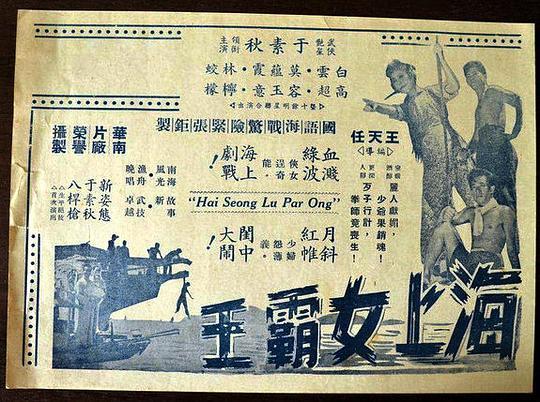 武俠艷星
于素秋
領銜主演
白雲・莫蘊霞・林蛟
高超・容玉意・檸檬
◁暨十餘明星聯合演出▷
國語海戰驚險緊張鉅製
王天任
◁編導▷
麗人獻媚，
少爺果銷魂！
歹子行計，
拳師竟喪生！
血濺綠波
俠女逞奇能・
海上劇戰！
"Hai Seong Lu Par Ong"
月斜紅帷
少婦怨薄義・
閨中大鬧！
南海 故事
風光・新
漁舟・武技
晚唱 卓越
華南片廠榮譽攝製
新姿態
于素秋
八桿槍
海上女霸王